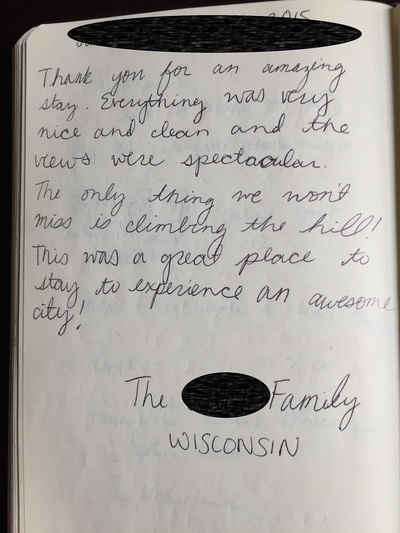 2015
Thank you for an amazing
stay. Everything was very
nice and clean and the
views were spectacular.
The only thing we won't
miss is climbing the hill!
This was a great place to
stay to experience an awesome
city!
The Family
WISCONSIN